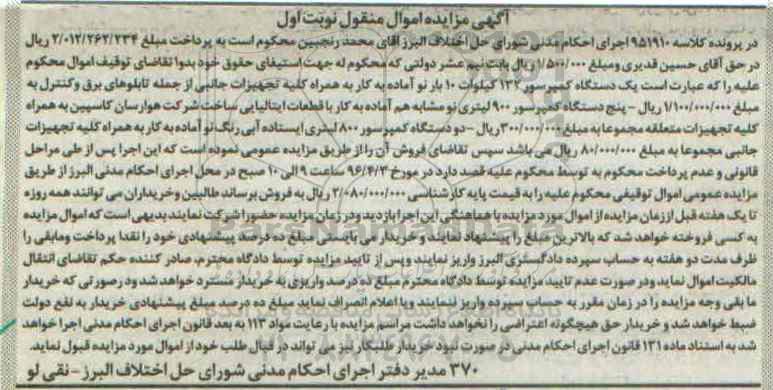 آگهی مزایده اموال منقول نوبت اول
در پرونده کلاسه ۹۵۱۹۱۰ اجرای احکام مدنی شورای حل اختلاف البرز آقای محمد رنجبین محکوم است به پرداخت مبلغ ۲/۰۱۲/۲۶۲/۲۳۴ ریال
در حق آقای حسین قدیری و مبلغ ۱/۵۰۰/۰۰۰ ریال بابت نیم عشر دولتی که محکوم له جهت استیفای حقوق خود بدوا تقاضای توقیف اموال محکوم
علیه را که عبارت است یک دستگاه کمپرسور ۱۳۲ کیلوات ۱۰ بار نو آماده به کار به همراه کلیه تجهیزات جانبی از جمله تابلوهای برق وکنترل به
مبلغ ۱/۱۰۰/۰۰۰/۰۰۰ ریال - پنج دستگاه کمپرسور ۹۰۰ لیتری نو مشابه هم آماده به کار با قطعات ایتالیایی ساخت شرکت هوارسان کاسپین به همراه
کلیه تجهیزات متعلقه مجموعا به مبلغ ۳۰۰/۰۰۰/۰۰۰ ریال - دو دستگاه کمپرسور ۸۰۰ لیتری ایستاده آبی رنگ نو آماده به کار به همراه کلیه تجهیزات
جانبی مجموعا به مبلغ ۸۰/۰۰۰/۰۰۰ ریال می باشد سپس تقاضای فروش آن را از طریق مزایده عمومی نموده است که این اجرا پس از طی مراحل
قانونی و عدم پرداخت محکوم به توسط محکوم علیه قصد دارد در مورخ ۹۶/۴/۳ ساعت ۹ الی ۱۰ صبح در محل اجرای احکام مدنی البرز از طریق
مزایده عمومی اموال توقیفی محکوم علیه را به قیمت پایه کارشناسی ۲/۰۸۰/۰۰۰/۰۰۰ ریال به فروش برساند طالبین وخریداران می توانند همه روزه
تا یک هفته قبل از زمان مزایده از اموال مورد مزایده با هماهنگی این اجرا بازدید ودر زمان مزایده حضورا شرکت نمایند بدیهی است که اموال مزایده
به کسی فروخته خواهد شد که بالاترین مبلغ را پیشنهاد نمایند و خریدار می بایستی مبلغ ده درصد پیشنهادی خود را نقدا پرداخت ومابقی را
ظرف مدت دو هفته به حساب سپرده دادگستری البرز واریز نمایند وپس از تایید مزایده توسط دادگاه محترم، صادر کننده حکم تقاضای انتقال
مالکیت اموال نماید ودر صورت عدم تایید مزایده توسط دادگاه محترم مبلغ ده درصد واریزی به خریدار مسترد خواهد شد ود رصورتی که خریدار
ما بقی وجه مزایده را در زمان مقرر به حساب سپرده واریز ننمایند ویا اعلام انصراف نماید مبلغ ده درصد مبلغ پیشنهادی خریدار به نفع دولت
ضبط خواهد شد و خریدار حق هیچگونه اعتراضی را نخواهد داشت مراسم مزایده با رعایت مواد ۱۱۳ به بعد قانون اجرای احکام مدنی اجرا خواهد
شد به استناد ماده ۱۳۱ قانون اجرای احکام مدنی در صورت نبود خریدار طلبکار نیز می تواند در قبال طلب خود از اموال مورد مزایده قبول نماید.
۳۷۰ مدیر دفتر اجرای احکام مدنی شورای حل اختلاف البرز - نقی لو